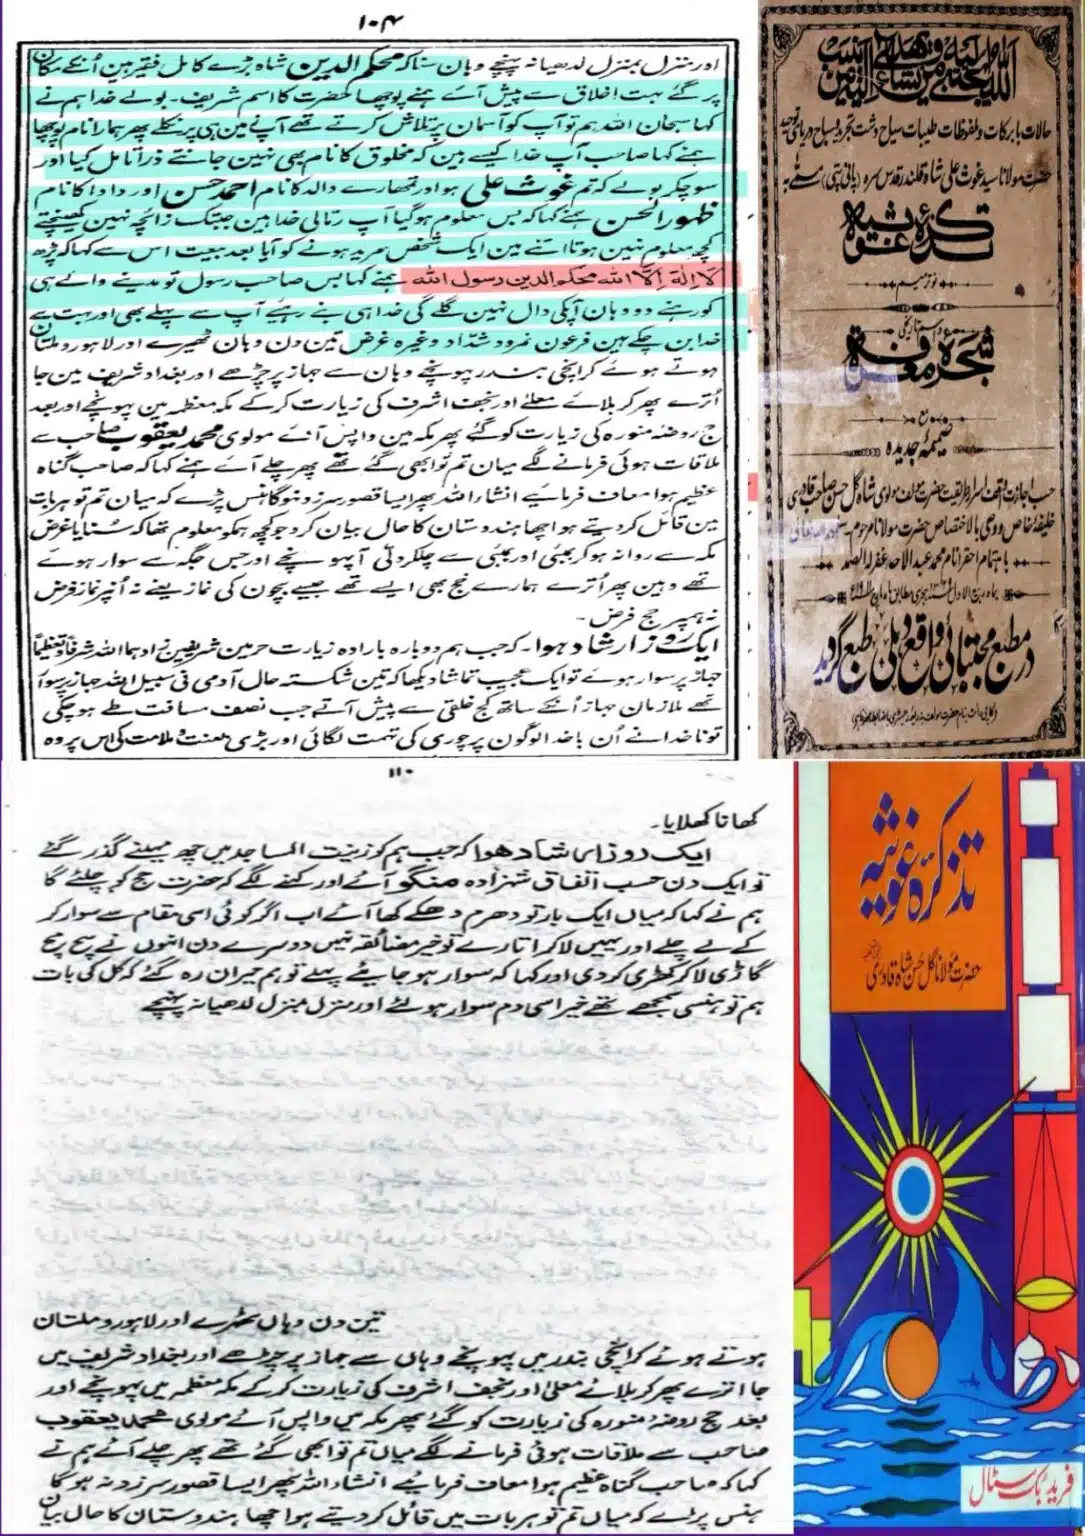 ۱۰۴
اور منزل بمنزل لدھیانہ پہنچے وہاں سنا کہ محکم الدین شاہ بڑے کامل فقیر ہین اُنکے مکان
پر گئے بہت اخلاق سے پیش آئے ہمنے پوچھا کہ حضرت کا اسم شریف۔ بولے خدا ہم نے
کہا سبحان اللہ ہم تو آپ کو آسمان پر تلاش کرتے تھے آپ زمین ہی پر نکلے پھر ہمارا نام پوچھا
ہمنے کہا صاحب آپ خدا کیسے ہین کہ مخلوق کا نام بھی نہین جانتے ذرا تامل کیا اور
سوچکر بولے کہ تم غوث علی ہو اور تمھارے والد کا نام احمد حسن اور دادا کا نام
ظہور الحسن ہمنے کہا کہ بس معلوم ہو گیا آپ رتالی خدا ہین جبتک زائچہ نہین کھینچتے
کچھ معلوم نہین ہوتا اتنے مین ایک شخص مرید ہونے کو آیا بعد بیعت اس سے کہا کہ پڑھ
لا الہ الا اللہ محکم الدین رسول اللہ ہمنے کہا بس صاحب رسول تو مدینے والے ہی
کو رہنے دو وہان آپکی دال نہین گلے گی خدا ہی بنے رہیے آپ سے پہلے بھی اور بہت سے
خدا بن چکے ہین فرعون نمرود شداد وغیرہ غرض تین دن وہان ٹھیرے اور لاہور و ملتان
ہوتے ہوئے کرانچی بندر پہونچے وہان سے جہاز پر چڑھے اور بغداد شریف مین جا
اُترے پھر کربلائے معلے اور نجف اشرف کی زیارت کر کے مکہ معظمہ مین پہونچے اور بعد
حج روضۂ منورہ کی زیارت کو گئے پھر مکہ مین واپس آئے مولوی محمد یعقوب صاحب سے
ملاقات ہوئی فرمانے لگے میان تم تو ابھی گئے تھے پھر چلے آئے ہمنے کہا کہ صاحب گناہ
عظیم ہوا معاف فرمایئے انشاء اللہ پھر ایسا قصور سرزد نہوگا ہنس پڑے کہ میان تم تو ہر بات
مین قائل کر دیتے ہو اچھا ہندوستان کا حال بیان کرو جو کچھ ہمکو معلوم تھا کہہ سُنایا غرض
مکہ سے روانہ ہو کر بمبئی اور بمبئی سے چلکر دلی آپہونچے اور جس جگہ سے سوار ہوئے
تھے وہین پھر اُترے ہمارے حج بھی ایسے تھے جیسے بچون کی نماز یعنے نہ اُنپر نماز فرض
نہ ہمپر حج فرض۔
ایک روز ارشاد ہوا۔ کہ جب ہم دوبارہ بارادہ زیارت حرمین شریفین زادہما اللہ شرفاً و تعظیماً
جہاز پر سوار ہوئے تو ایک عجیب تماشا دیکھا کہ تین شکستہ حال آدمی فی سبیل اللہ جہاز پر سوار
تھے ملازمان جہاز اُنکے ساتھ کج خلقی سے پیش آتے جب نصف مسافت طے ہو چکی
تو ناخدا نے اُن باخدا لوگون پر چوری کی تہمت لگائی اور بڑی لعنت ملامت کی اس پر وہ
حالات بابرکات و ملفوظات طیبات سیاح دشت تجرید و سباح دریای توحید
حضرت مولانا سید غوث علی شاہ قلندر قدس سرہ (پانی پتی) مسمے بہ
تذکرۂ غوثیہ
نو ترمیم
شجرۂ معرفت
مع
ضمیمۂ جدیدہ
خلیفۂ خاص
باہتمام احقر انام محمد عبد الاحد غفرلہ الصمد
در مطبع مجتبائی واقع دہلی طبع گردید
۱۱۰
کھانا کھلایا۔
ایک روز ارشاد ہوا کہ جب ہم کو زینت المساجد میں چھ مہینے گذر گئے
تو ایک دن حسب اتفاق شہزادہ منگو آئے اور کہنے لگے کہ حضرت حج کو چلئے گا
ہم نے کہا کہ میاں ایک بار تو دھرم دھکے کھا آئے اب اگر کوئی اسی مقام سے سوار کر
کے لے چلے اور یہیں لا کر اتارے تو خیر مضائقہ نہیں دوسرے دن انہوں نے سچ مچ
گاڑی لا کر کھڑی کر دی اور کہا کہ سوار ہو جایئے پہلے تو ہم حیران رہ گئے کہ کل کی بات
ہم تو ہنسی سمجھے تھے خیر اسی دم سوار ہو لئے اور منزل منزل لدھیانہ پہنچے
تین دن وہاں ٹھہرے اور لاہور و ملتان
ہوتے ہوئے کرانچی بندر میں پہونچے وہاں سے جہاز پر چڑھے اور بغداد شریف میں
جا اترے پھر کربلائے معلیٰ اور نجف اشرف کی زیارت کر کے مکہ معظمہ میں پہونچے اور
بعد حج روضۂ منورہ کی زیارت کو گئے پھر مکہ میں واپس آئے مولوی محمد یعقوب
صاحب سے ملاقات ہوئی فرمانے لگے میاں تم تو ابھی گئے تھے پھر چلے آئے ہم نے
کہا کہ صاحب گناہ عظیم ہوا معاف فرمایئے انشاء اللہ پھر ایسا قصور سرزد نہ ہو گا
ہنس پڑے کہ میاں تم تو ہر بات میں قائل کر دیتے ہو اچھا ہندوستان کا حال بیان
تذکرۂ غوثیہ
حضرت مولانا گل حسن شاہ قادری
فرید بک سٹال